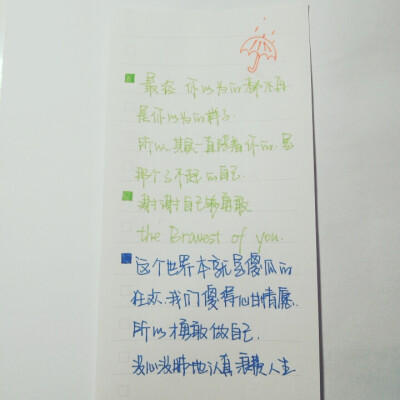 最后 你以为的都不再
是你以为的样子
所以其实一直陪着你的,是
那个了不起的自己.
谢谢自己够勇敢
the Bravest of you.
这个世界本就是傻瓜的
狂欢.我们傻得心甘情愿.
所以才勇敢做自己.
没心没肺地认真浪费人生